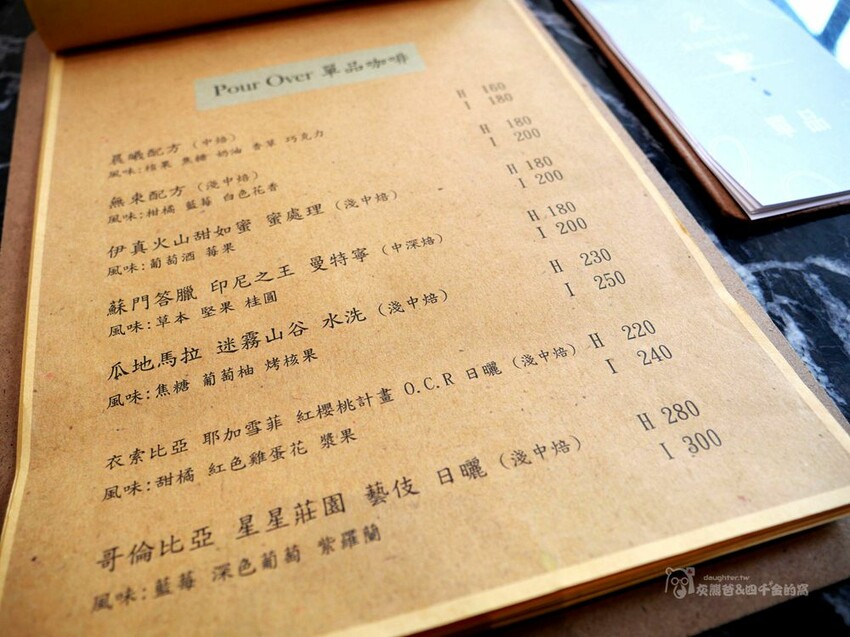 Pour Over 單品咖啡
晨曦配方(中焙) H 160
風味:核果 焦糖 奶油 香草 巧克力 I 180
無束配方(淺中焙) H 180
風味:柑橘 藍莓 白色花香 I 200
伊真火山甜如蜜 蜜處理(淺中焙) H 180
風味:葡萄酒 莓果 I 200
蘇門答臘 印尼之王 曼特寧(中深焙) H 180
風味:草本 堅果 桂圓 I 200
瓜地馬拉 迷霧山谷 水洗(淺中焙) H 230
風味:焦糖 葡萄柚 烤核果 I 250
衣索比亞 耶加雪菲 紅櫻桃計畫 O.C.R 日曬(淺中焙) H 220
風味:甜橘 紅色雞蛋花 漿果 I 240
哥倫比亞 星星莊園 藝伎 日曬(淺中焙) H 280
風味:藍莓 深色葡萄 紫羅蘭 I 300
daughter.tw
灰熊爸&四千金的窩